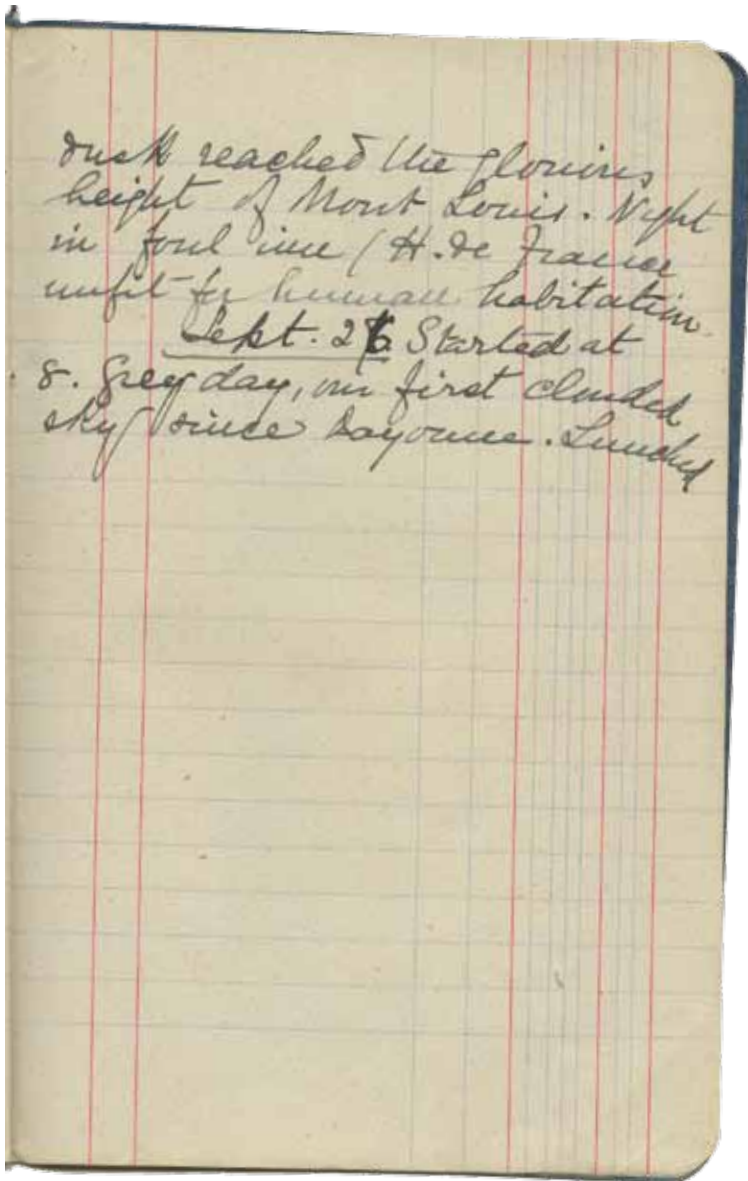 dusk reached the glorious
height of Mont Louis. Night
in foul inn (H. de France
unfit for human habitation.
Sept. 26 Started at
8. Grey day, our first clouded
sky since Bayonne. Lunched